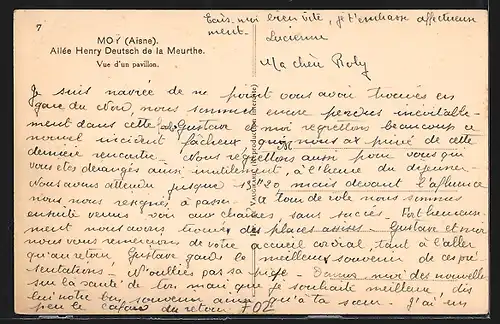 7
MOŸ (Aisne).
Allée Henry Deutsch de la Meurthe.
Vue d'un pavillon.
Ecris-moi bien vite, je t'embrasse affectueuse
ment. Lucienne
Ma chère Roby
Je suis navrée de ne point vous avoir trouvés en
gare du Nord, nous sommes encore perdus inévitable-
ment dans cette Gustave et moi regrettons beaucoup ce
nouvel incident fâcheux qui nous a privé de cette
dernière rencontre. Nous regrettons aussi pour vous qui
vous êtes dérangés ainsi inutilement, à l'heure du déjeuner
Nous avons attendu jusque 13h20 mais devant l'affluence
nous nous resignés à passer à tour de rôle nous sommes
ensuite venus voir aux chaînes, sans succès. Fort heureuse-
ment nous avons trouvé des places assises. Gustave et moi
nous vous remercions de votre accueil cordial, tant à l'aller
qu'au retour, Gustave garde le meilleur souvenir de ces pré
sentations. N'oublies pas sa pige. Donnes-moi des nouvelles
sur la santé de ton mari que je souhaite meilleure dis
lui notre bon souvenir ainsi qu'à ta sœur. J'ai un
peu le cafard du retour